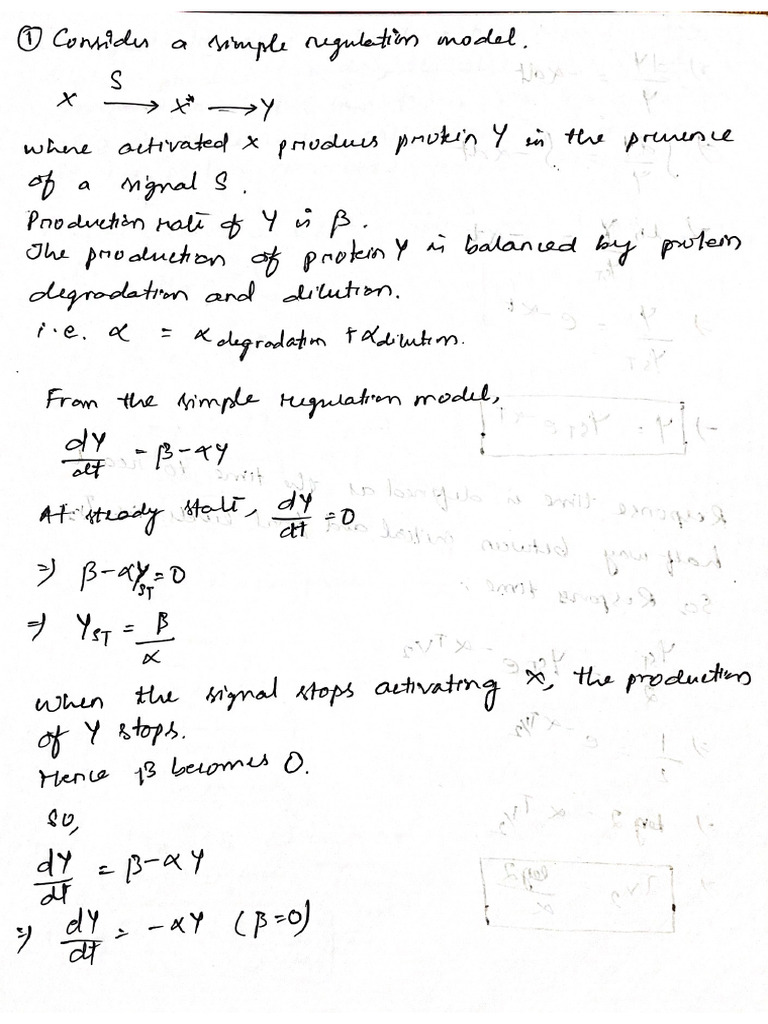 ① Consider a simple regulation model.
X S⟶ X* ⟶ Y
where activated X produces protein Y in the presence
of a signal S.
Production rate of Y is β.
The production of protein Y is balanced by protein
degradation and dilution.
i.e. α = α degradation + α dilution.
From the simple regulation model,
dY/dt = β - αY
At steady state, dY/dt = 0
⇒ β - αY_ST = 0
⇒ Y_ST = β/α
When the signal stops activating X, the production
of Y stops.
Hence β becomes 0.
So,
dY/dt = β - αY
⇒ dY/dt = -αY (β=0)